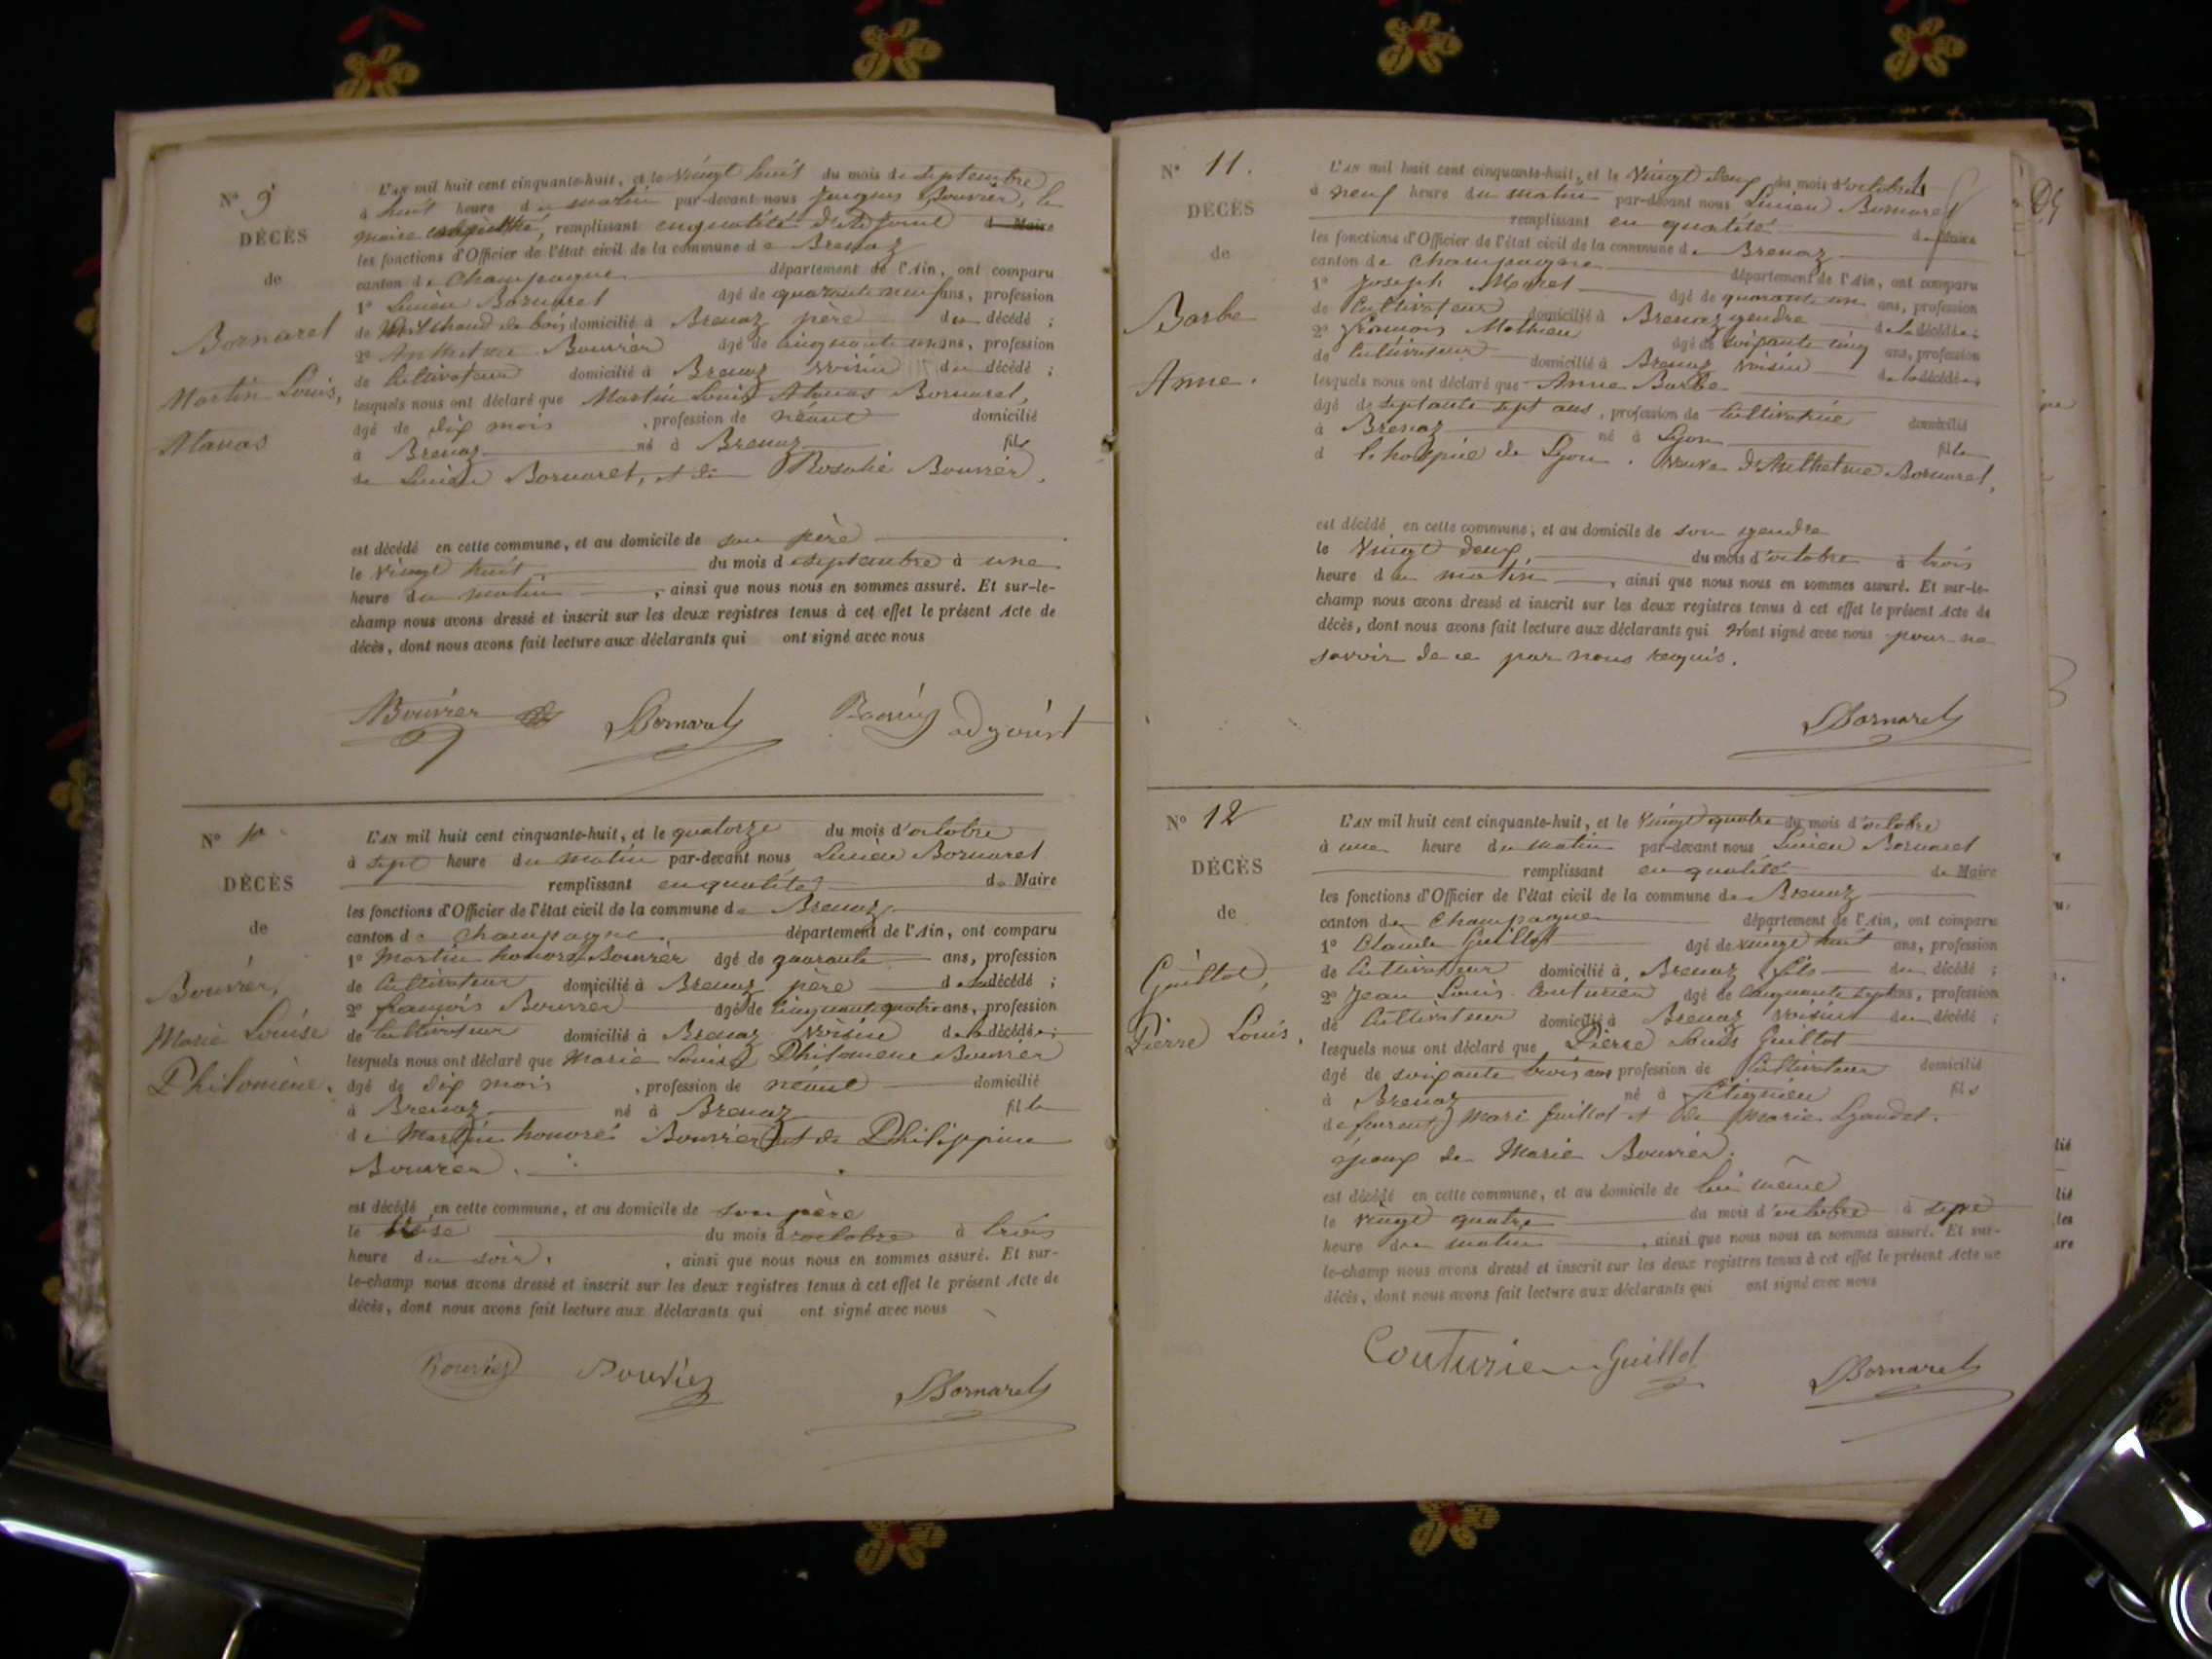 N° 9
DÉCÈS
de
Bornarel
Martin Louis,
Atanas
L'AN mil huit cent cinquante-huit, et le Vingt huit du mois de septembre
à huit heure du matin par-devant nous Jacques Bouvier, le
maire empêché, remplissant enqualité d'adjoint de Maire
les fonctions d'Officier de l'état civil de la commune de Brenaz
canton de Champagne département de l'Ain, ont comparu
1° Lucien Bornarel âgé de quarante neuf ans, profession
de Marchand de bois domicilié à Brenaz père du décédé ;
2° Anthelme Bouvier âgé de cinquante un ans, profession
de Cultivateur domicilié à Brenaz voisin du décédé ;
lesquels nous ont déclaré que Martin Louis Atanas Bornarel,
âgé de dix mois , profession de néant domicilié
à Brenaz né à Brenaz fils
de Lucien Bornarel, et de Rosalie Bouvier.
est décédé en cette commune, et au domicile de son père
le vingt huit du mois de septembre à une
heure du matin , ainsi que nous nous en sommes assuré. Et sur-le-
champ nous avons dressé et inscrit sur les deux registres tenus à cet effet le présent Acte de
décès, dont nous avons fait lecture aux déclarants qui ont signé avec nous
Bouvier LBornarel adjoint
N° 10
DÉCÈS
de
Bouvier,
Marie Louise
Philomène.
L'AN mil huit cent cinquante-huit, et le quatorze du mois d'octobre
à sept heure du matin par-devant nous Lucien Bornarel
remplissant enqualité de Maire
les fonctions d'Officier de l'état civil de la commune de Brenaz
canton de Champagne département de l'Ain, ont comparu
1° Martin honoré Bouvier âgé de quarante ans, profession
de Cultivateur domicilié à Brenaz père de la décédé ;
2° françois Bouvier âgé de cinquante quatre ans, profession
de Cultivateur domicilié à Brenaz voisin de la décédée ;
lesquels nous ont déclaré que Marie Louise Philomène Bouvier
âgé de dix mois , profession de néant domicilié
à Brenaz né à Brenaz fille
de Martin honoré Bouvier et de Philippine
Bouvier.
est décédé en cette commune, et au domicile de son père
le treise du mois d'octobre à trois
heure du soir. , ainsi que nous nous en sommes assuré. Et sur-
le-champ nous avons dressé et inscrit sur les deux registres tenus à cet effet le présent Acte de
décès, dont nous avons fait lecture aux déclarants qui ont signé avec nous
Bouvier Bouvier LBornarel
N° 11.
DÉCÈS
de
Barbe
Anne.
L'AN mil huit cent cinquante-huit, et le Vingt deux du mois d'octobre
à neuf heure du matin par-devant nous Lucien Bornarel
remplissant en qualité de Maire
les fonctions d'Officier de l'état civil de la commune de Brenaz
canton de Champagne département de l'Ain, ont comparu
1° Joseph âgé de quarante un ans, profession
de Cultivateur domicilié à Brenaz gendre de la décédée ;
2° françois Mathieu âgé de soixante cinq ans, profession
de Cultivateur domicilié à Brenaz voisin de la décédée
lesquels nous ont déclaré que Anne Barbe
âgé de septante sept ans, profession de Cultivatrice domicilié
à Brenaz né à Lyon fille
d l'hospice de Lyon. Veuve d'Anthelme Bornarel,
est décédé en cette commune, et au domicile de son gendre
le Vingt deux, du mois d'octobre à trois
heure du matin , ainsi que nous nous en sommes assuré. Et sur-le-
champ nous avons dressé et inscrit sur les deux registres tenus à cet effet le présent Acte de
décès, dont nous avons fait lecture aux déclarants qui n'ont signé avec nous pour ne
savoir de ce par nous requis.
LBornarel
N° 12
DÉCÈS
de
Guillot,
Pierre Louis.
L'AN mil huit cent cinquante-huit, et le Vingt quatre du mois d'octobre
à une heure du matin par-devant nous Lucien Bornarel
remplissant en qualité de Maire
les fonctions d'Officier de l'état civil de la commune de Brenaz
canton de Champagne département de l'Ain, ont comparu
1° Claude Guillot âgé de vingt huit ans, profession
de Cultivateur domicilié à Brenaz fils du décédé ;
2° Jean Louis Couturier âgé de cinquante sept ans, profession
de Cultivateur domicilié à Brenaz voisin du décédé ;
lesquels nous ont déclaré que Pierre Louis Guillot
âgé de soixante trois ans profession de Cultivateur domicilié
à Brenaz né à fils
de Laurent Mari Guillot et de Marie
époux de Marie Bouvier.
est décédé en cette commune, et au domicile de lui même
le vingt quatre du mois d'octobre à sept
heure du matin , ainsi que nous nous en sommes assuré. Et sur-
le-champ nous avons dressé et inscrit sur les deux registres tenus à cet effet le présent Acte de
décès, dont nous avons fait lecture aux déclarants qui ont signé avec nous
Couturier Guillot LBornarel